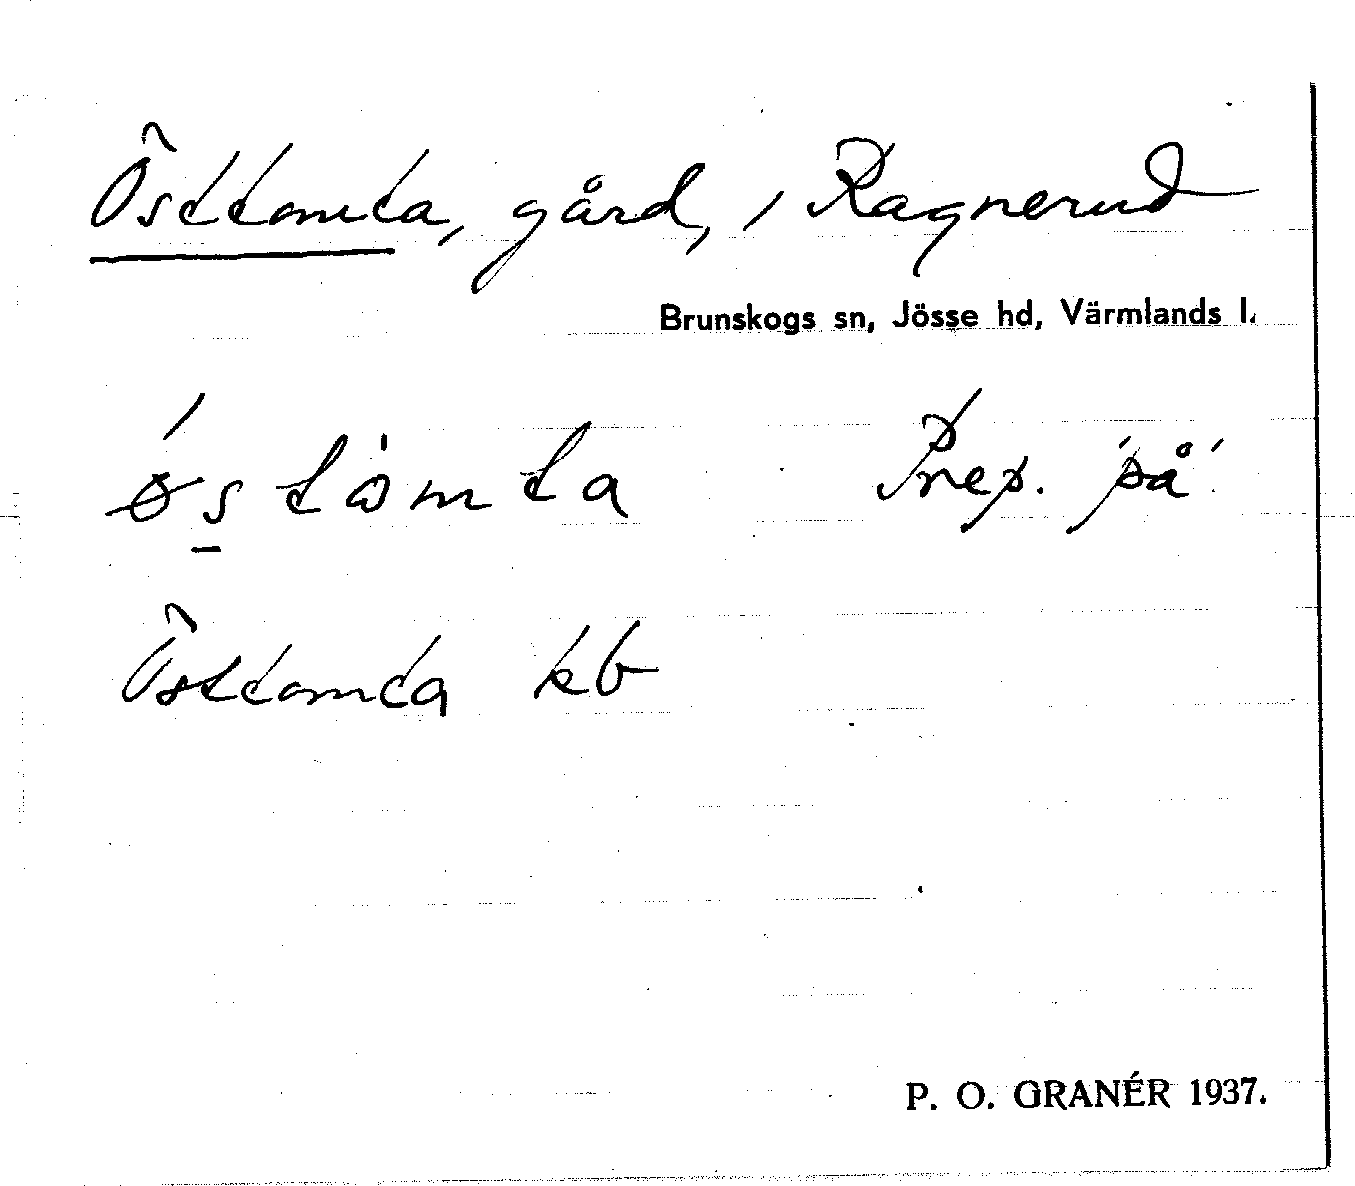 Östtomta, gård, i Ragnerud
Brunskogs sn, Jösse hd, Värmlands l.
ǿstòmta Prep. 'på'
Östtomta kb
P. O. GRANÉR 1937.